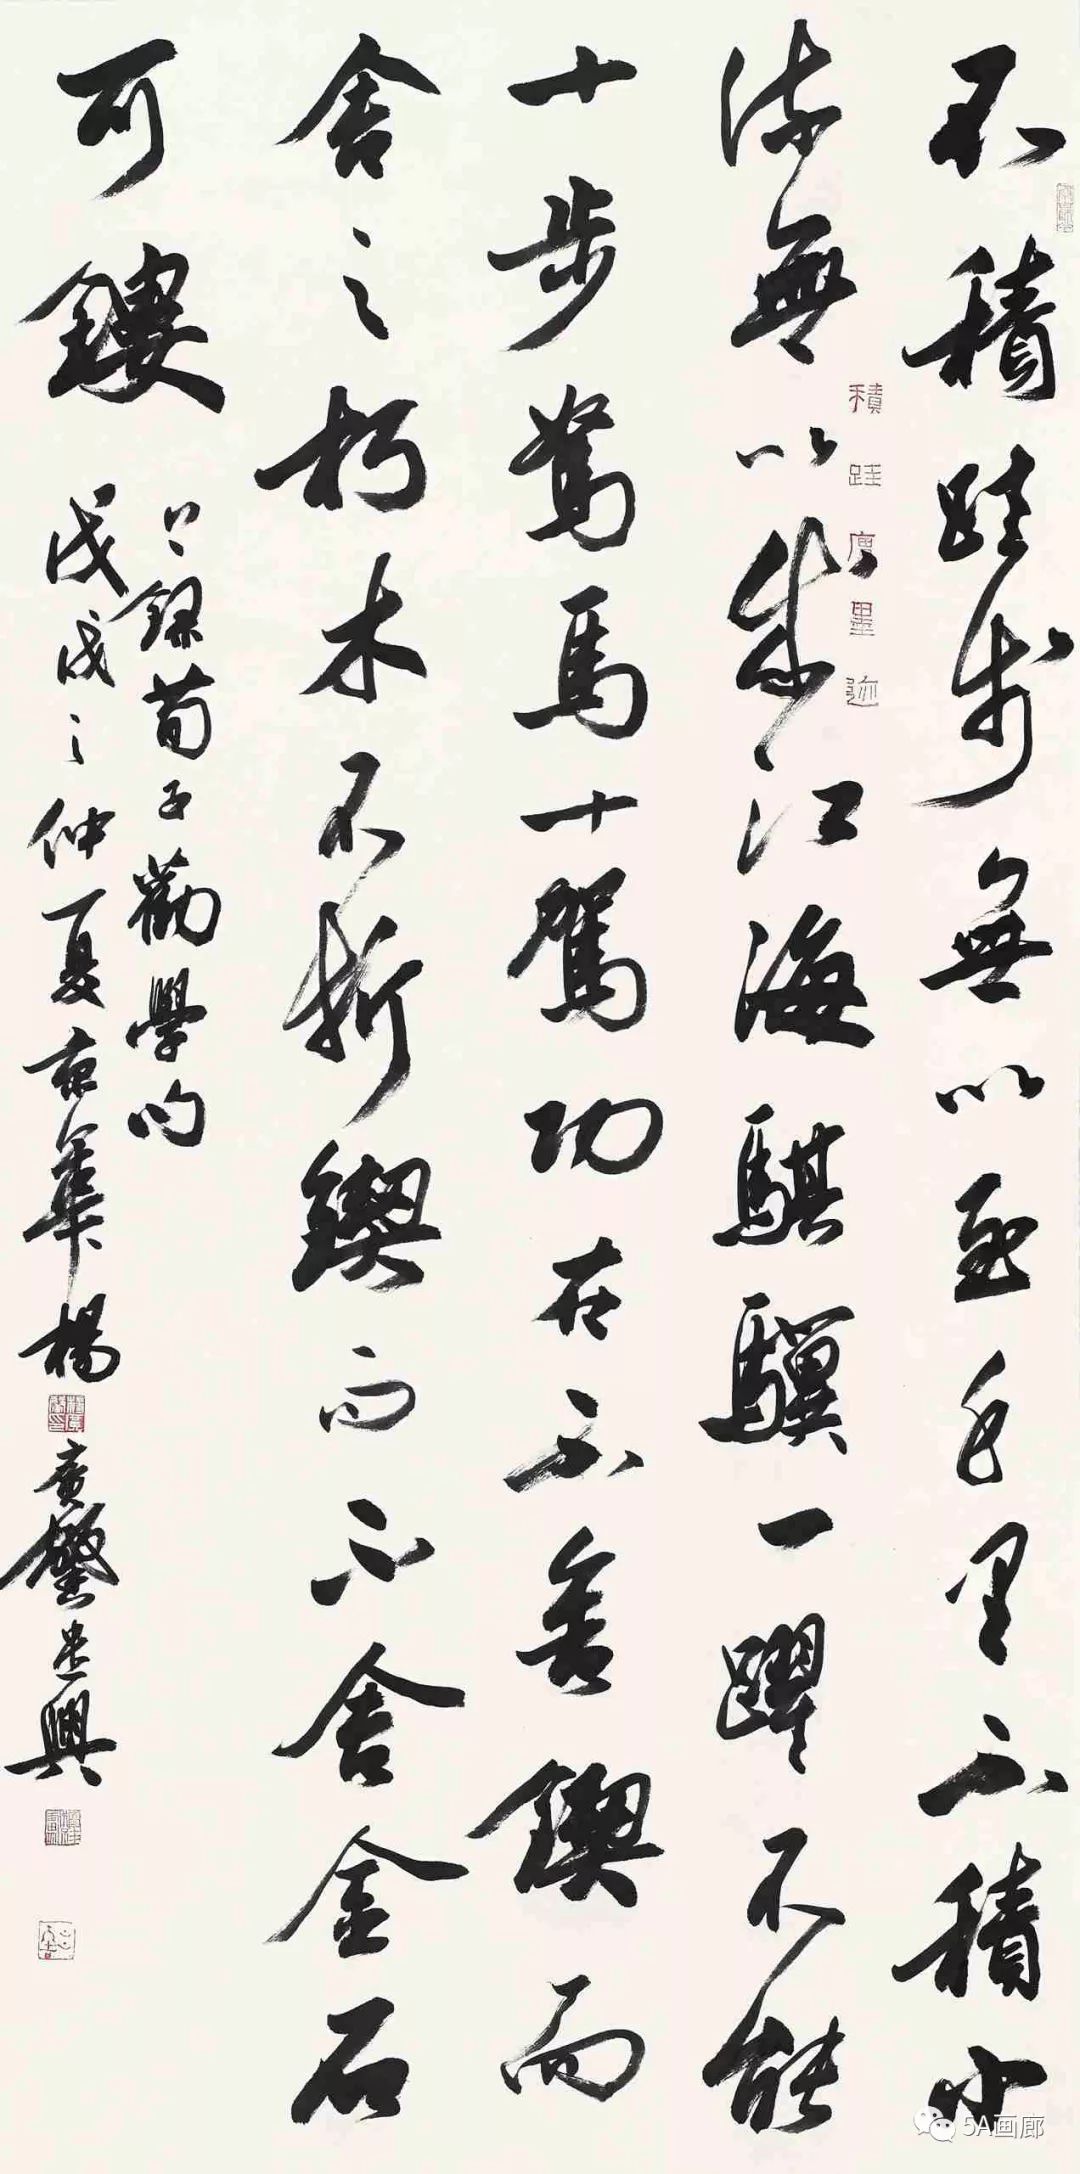 不積跬步無以至千里不積小
流無以成江海騏驥一躍不能
十步駑馬十駕功在不舍鍥而
舍之朽木不折鍥而不舍金石
可鏤
錄荀子勸學句
戊戌之仲夏京華楊廣馨興
積跬墨迹
5A画廊